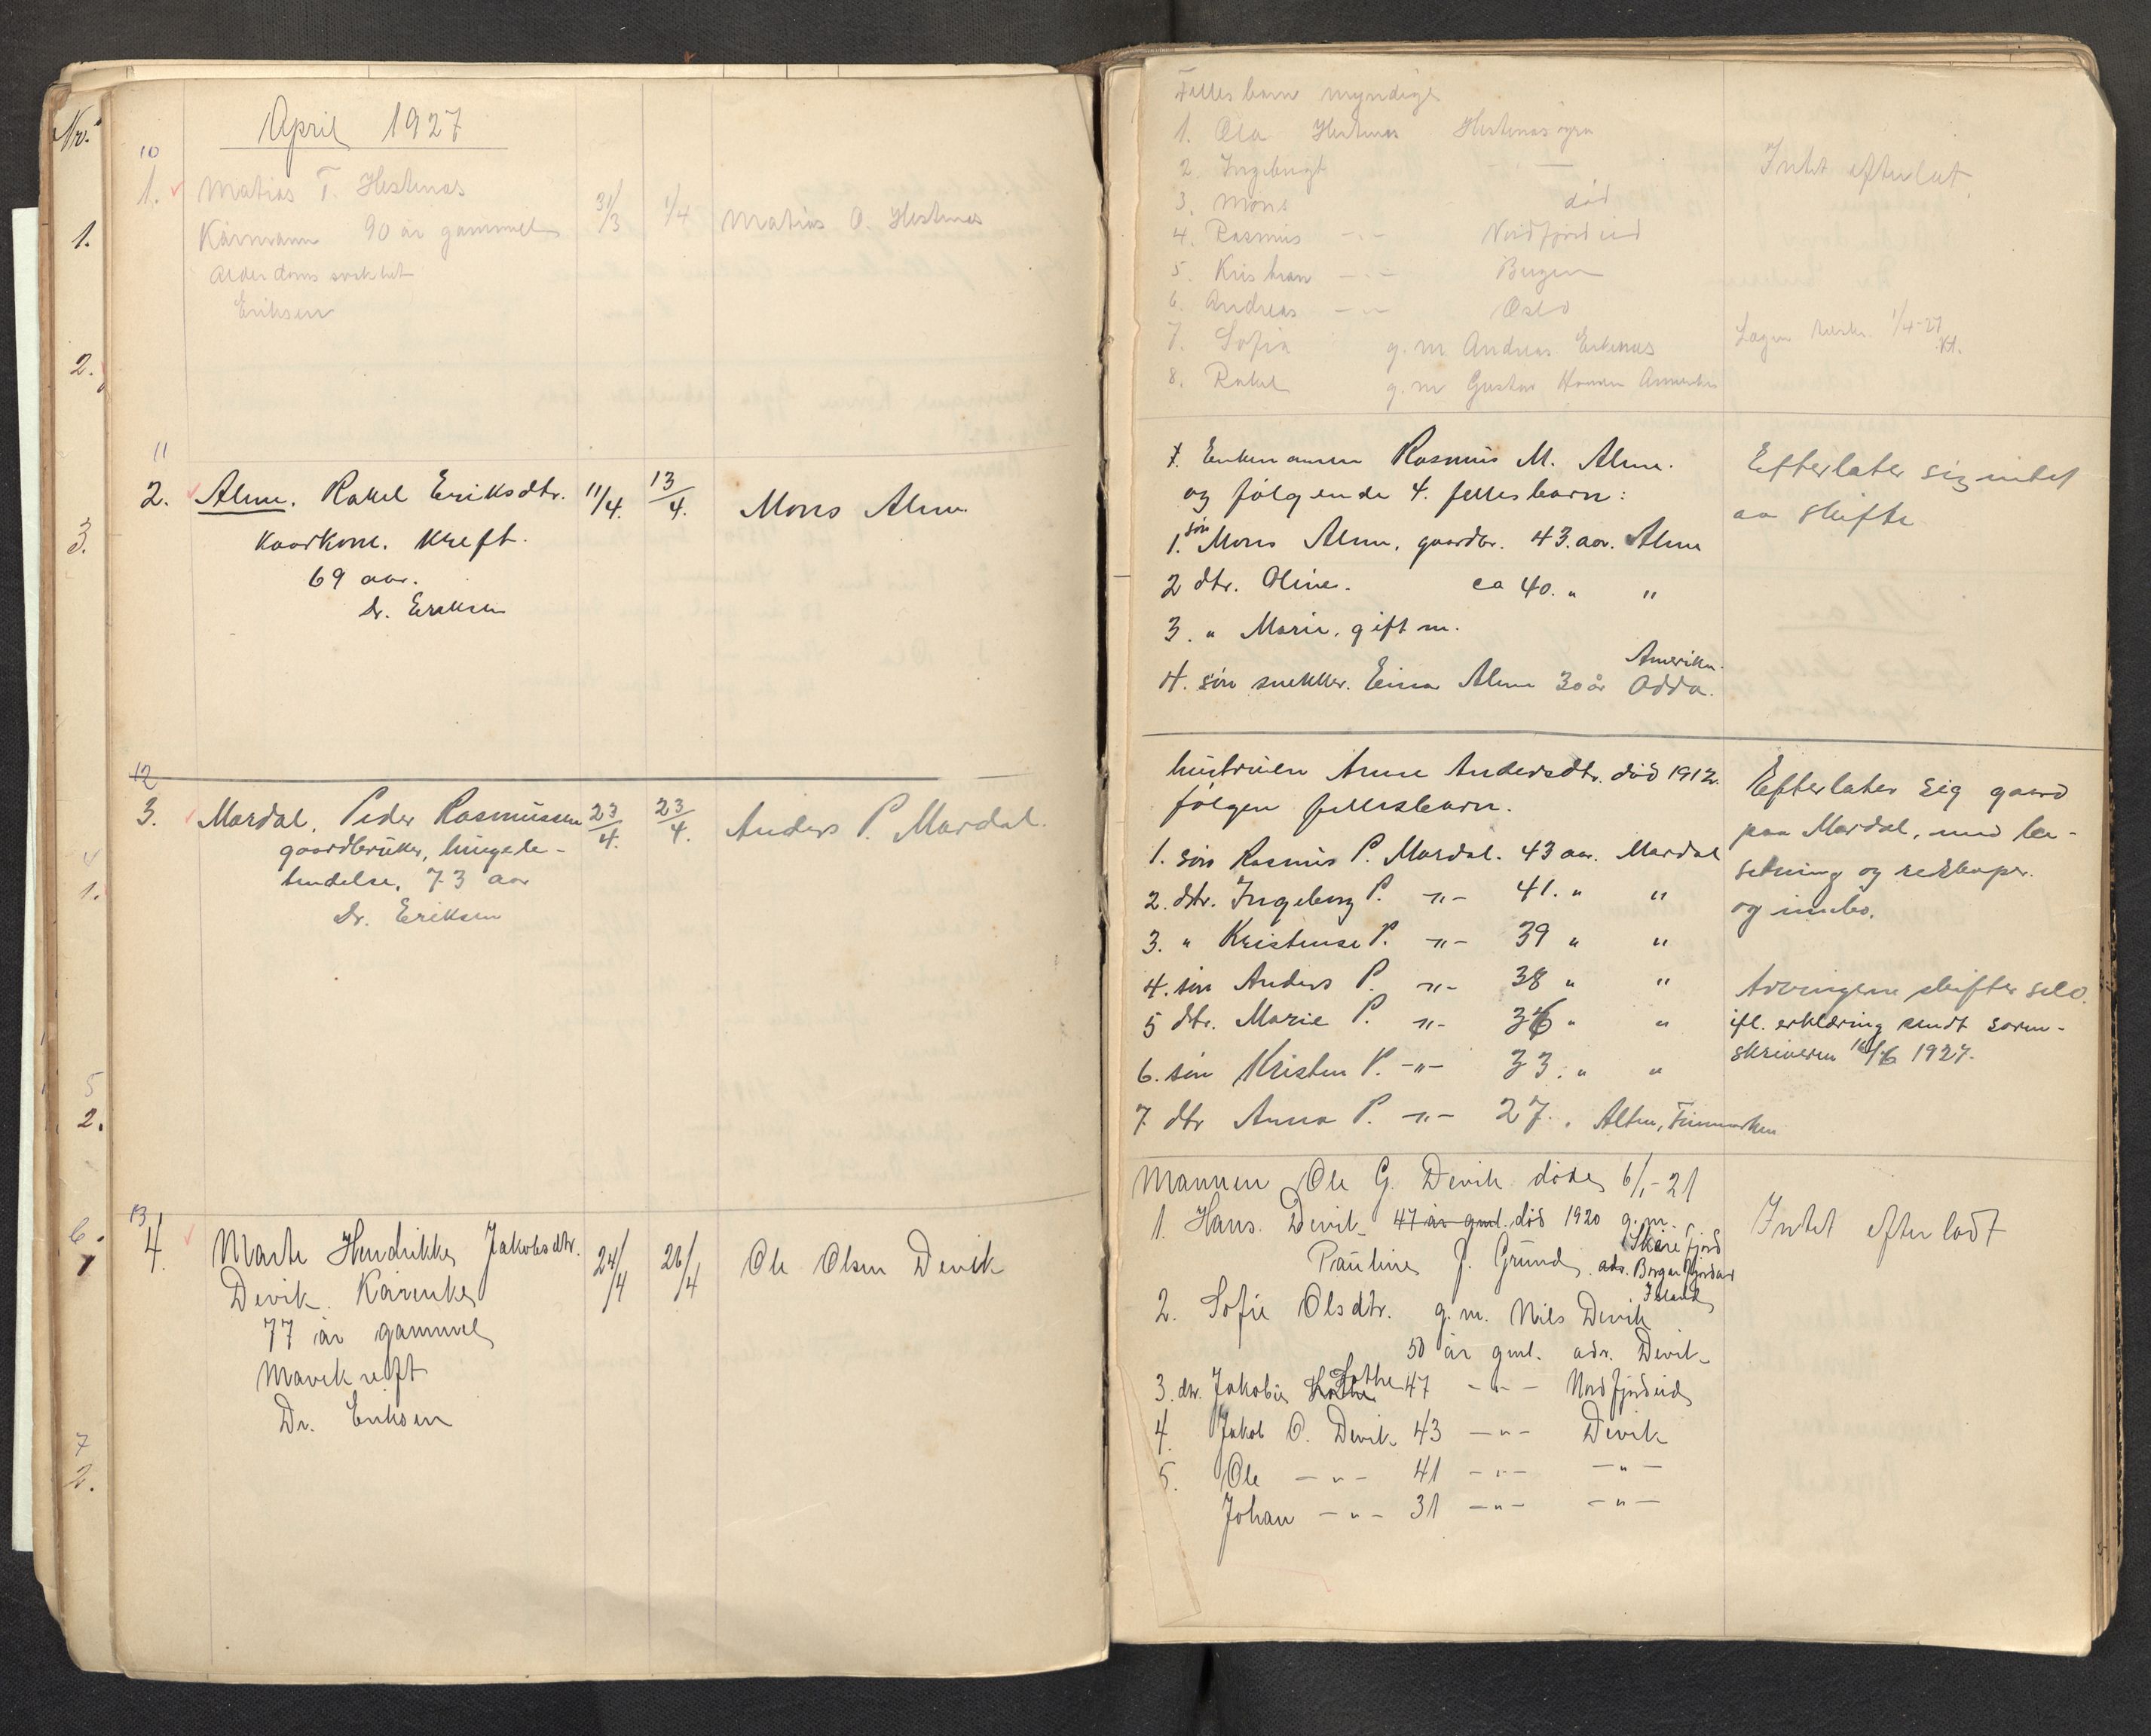 Nr.
1.
2.
3.
4
1.
5
2.
6.
1
7
2.
April 1927
10
1. Matias T. Hestenes 31/3 1/4 Matias O. Hestenes
Kårmann 90 år gammel
Alderdomssvakhet
Eriksen
11
2. Alme. Rakel Eriksdtr. 11/4. 13/4. Mons Alme
Kaarkone. Kreft.
69 aar.
Dr. Eriksen
12
3. Mardal. Peder Rasmussen 23/4. 23/4. Anders P. Mardal.
gaardbruker, lungebe-
tendelse, 73 aar
Dr. Eriksen
13
4. Marte Hendrikke Jakobsdtr. 24/4 26/4 Ole Olsen Devik
Devik Kårenke
77 år gammel
Mavekreft
Dr. Eriksen
Felles barn myndige
1. Ola Hestenes Hestenesøyra
2. Ingeborg
3. Mons død
4. Rasmus -"- Nordfjordeid
5. Kristian -"- Bergen
6. Andreas -"- Oslo
7. Sofia g.m. Andreas
8. Rakel g.m. Gustav Amerika
Intet efterlat
1/4-27
Enkemannen Rasmus M. Alme.
og følgende 4. fellesbarn:
1. søn Mons Alme, gaardbr. 43. aar. Alme
2 dtr. Oline. ca 40. " "
3. " Marie, gift m.
Amerika.
4. søn snekker. Einar Alme 30 år Odda.
Efterlater sig intet
aa skifte
hustruen Anne Andersdtr. død 1912.
følgen fellesbarn.
1. søn Rasmus P. Mardal. 43 aar. Mardal
2. dtr. Ingeborg P. -"- 41. " "
3. " Kristense P. -"- 39 " "
4. søn Anders P. -"- 38 " "
5 dtr. Marie P. -"- 36 " "
6. søn Kristen P. -"- 33. " "
7. dtr Anna P. -"- 27. , Alten, Finnmarken
Efterlater sig gaard
paa Mardal, med be-
setning og redskaper.
og innbo.
Arvingene skifter selv.
ifl. erklæring sendt soren-
skriveren 16/6 1927.
Mannen Ole G. Devik døde 6/1-21
1. Hans. Devik 47 år gml. død 1920 g.m.
Pauline J. Grund. adr. Borgarfjordur
Island
2. Sofie Olsdtr. g.m. Nils Devik
50 år gml. adr. Devik
3. dtr. Jakobie Lothe 47 -"- Nordfjordeid
4. Jakob O. Devik 43 -"- Devik
5. Ole -"- 41 -"- -"-
Johan -"- 31 -"- -"-
Intet efterladt